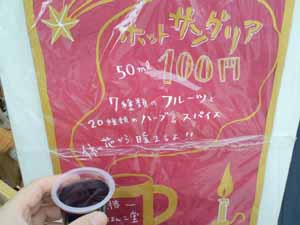 ホットサングリア
50ml 100円
7種類のフルーツと
20種類のハーブとスパイス
体の芯から暖まるよ!!